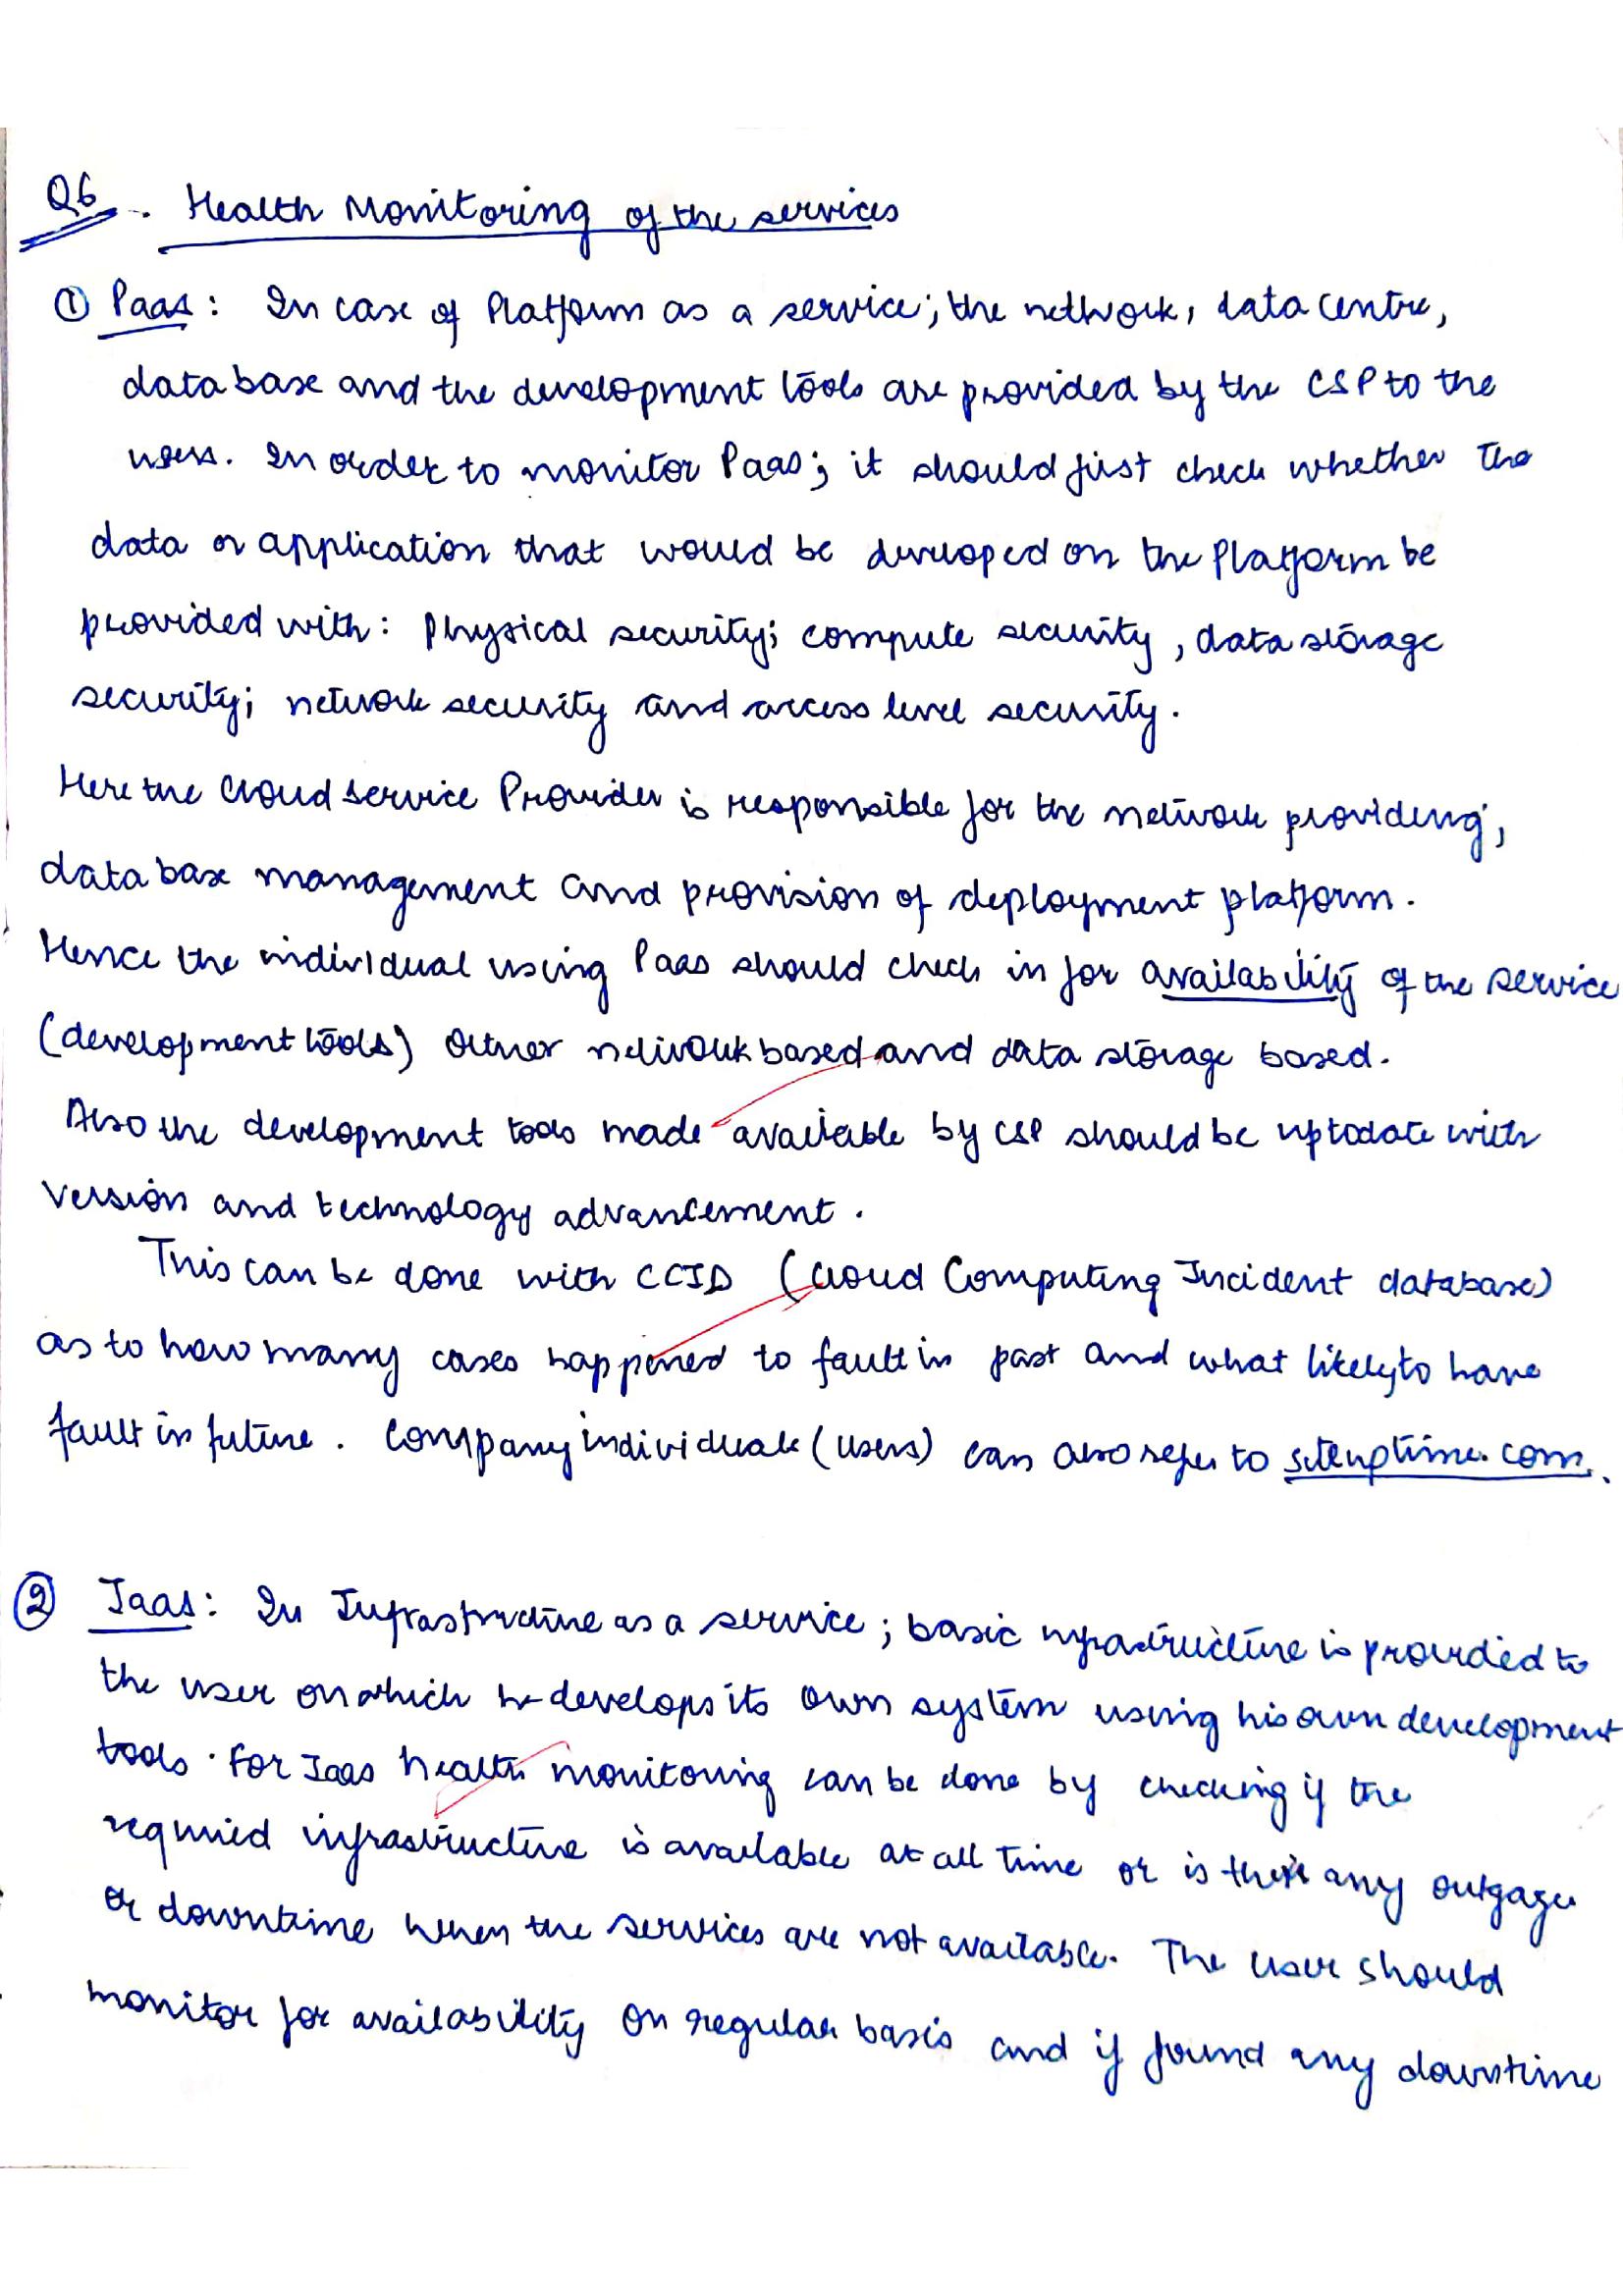 Q6. Health Monitoring of the services
① Paas: In case of Platform as a service; the network, data centre,
database and the development tools are provided by the CSP to the
users. In order to monitor Paas; it should first check whether the
data or application that would be developed on the Platform be
provided with: Physical security; compute security, data storage
security; network security and access level security.
Here the Cloud Service Provider is responsible for the network providing,
data base management and provision of deployment platform.
Hence the individual using Paas should check in for availability of the service
(development tools) network based and data storage based.
Also the development tools made available by CSP should be uptodate with
version and technology advancement.
This can be done with CCID (Cloud Computing Incident database)
as to how many cases happened to fault in past and what likely to have
fault in future. Company individuals (users) can also refer to siteuptime.com.
② Iaas: In Infrastructure as a service; basic infrastructure is provided to
the user on which he develops its own system using his own development
tools. For Iaas health monitoring can be done by checking if the
required infrastructure is available at all time or is there any outgage
or downtime when the services are not available. The user should
monitor for availability on regular basis and if found any downtime